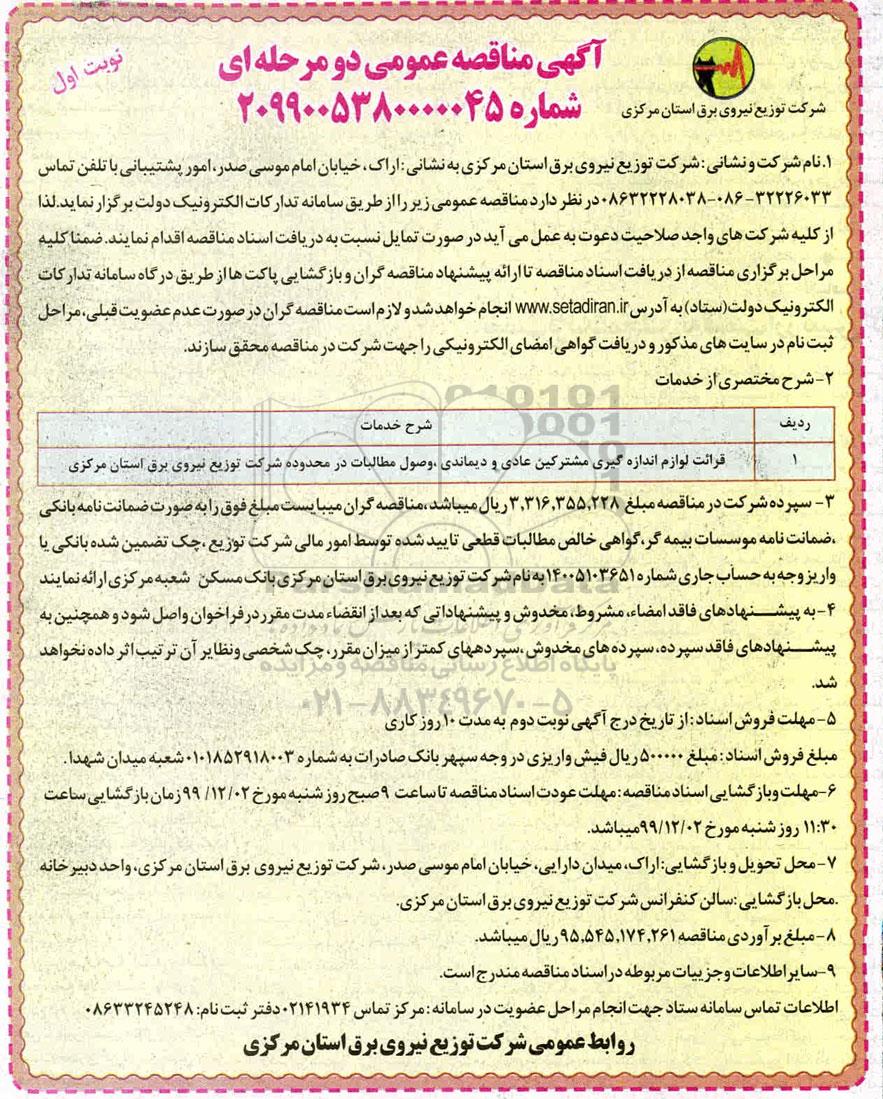 آگهی مناقصه عمومی دو مرحله ای
شماره ۲۰۹۹۰۰۵۳۸۰۰۰۰۰۴۵
نوبت اول
شرکت توزیع نیروی برق استان مرکزی
۱.نام شرکت و نشانی : شرکت توزیع نیروی برق استان مرکزی به نشانی : اراک ، خیابان امام موسی صدر، امور پشتیبانی با تلفن تماس
۳۲۲۲۶۰۳۳-۰۸۶-۰۸۶۳۲۲۲۸۰۳۸ در نظر دارد مناقصه عمومی زیر را از طریق سامانه تدارکات الکترونیک دولت برگزار نماید.لذا
از کلیه شرکت های واجد صلاحیت دعوت به عمل می آید در صورت تمایل نسبت به دریافت اسناد مناقصه اقدام نمایند. ضمنا کلیه
مراحل برگزاری مناقصه از دریافت اسناد مناقصه تا ارائه پیشنهاد مناقصه گران و بازگشایی پاکت ها از طریق درگاه سامانه تدارکات
الکترونیک دولت (ستاد) به آدرس www.setadiran.ir انجام خواهد شد و لازم است مناقصه گران در صورت عدم عضویت قبلی، مراحل
ثبت نام در سایت های مذکور و دریافت گواهی امضای الکترونیکی را جهت شرکت در مناقصه محقق سازند.
۲-شرح مختصری از خدمات
ردیف شرح خدمات
۱ قرائت لوازم اندازه گیری مشترکین عادی و دیماندی ،وصول مطالبات در محدوده شرکت توزیع نیروی برق استان مرکزی
۳- سپرده شرکت در مناقصه مبلغ ۳,۳۱۶,۳۵۵,۲۲۸ ریال میباشد ،مناقصه گران میبایست مبلغ فوق را به صورت ضمانت نامه بانکی
،ضمانت نامه موسسات بیمه گر،گواهی خالص مطالبات قطعی تایید شده توسط امور مالی شرکت توزیع ،چک تضمین شده بانکی یا
واریز وجه به حساب جاری شماره ۱۴۰۰۵۱۰۳۶۵۱ به نام شرکت توزیع نیروی برق استان مرکزی بانک مسکن شعبه مرکزی ارائه نمایند
۴-به پیشنهادهای فاقد امضاء، مشروط، مخدوش و پیشنهاداتی که بعد از انقضاء مدت مقرر در فراخوان واصل شود و همچنین به
پیشنهادهای فاقد سپرده، سپرده های مخدوش ،سپردههای کمتر از میزان مقرر، چک شخصی ونظایر آن ترتیب اثر داده نخواهد
شد.
۵-مهلت فروش اسناد : از تاریخ درج آگهی نوبت دوم به مدت ۱۰ روز کاری
مبلغ فروش اسناد : مبلغ ۵۰۰۰۰۰ ریال فیش واریزی در وجه سپهر بانک صادرات به شماره ۰۱۰۱۸۵۲۹۱۸۰۰۳ شعبه میدان شهدا.
۶-مهلت وبازگشایی اسناد مناقصه : مهلت عودت اسناد مناقصه تا ساعت ۹ صبح روز شنبه مورخ ۹۹/۱۲/۰۲ زمان بازگشایی ساعت
۱۱:۳۰ روز شنبه مورخ ۹۹/۱۲/۰۲ میباشد.
۷-محل تحویل و بازگشایی: اراک، میدان دارایی، خیابان امام موسی صدر، شرکت توزیع نیروی برق استان مرکزی، واحد دبیرخانه
.محل بازگشایی : سالن کنفرانس شرکت توزیع نیروی برق استان مرکزی.
۸-مبلغ برآوردی مناقصه ۹۵,۵۴۵,۱۷۴,۲۶۱ ریال میباشد.
۹-سایر اطلاعات وجزییات مربوطه در اسناد مناقصه مندرج است.
اطلاعات تماس سامانه ستاد جهت انجام مراحل عضویت در سامانه : مرکز تماس ۰۲۱۴۱۹۳۴ دفتر ثبت نام: ۰۸۶۳۳۲۴۵۲۴۸
روابط عمومی شرکت توزیع نیروی برق استان مرکزی
پایگاه اطلاع رسانی مناقصه و مزایده
۰۲۱-۸۸۳۴۹۶۷۰-۵